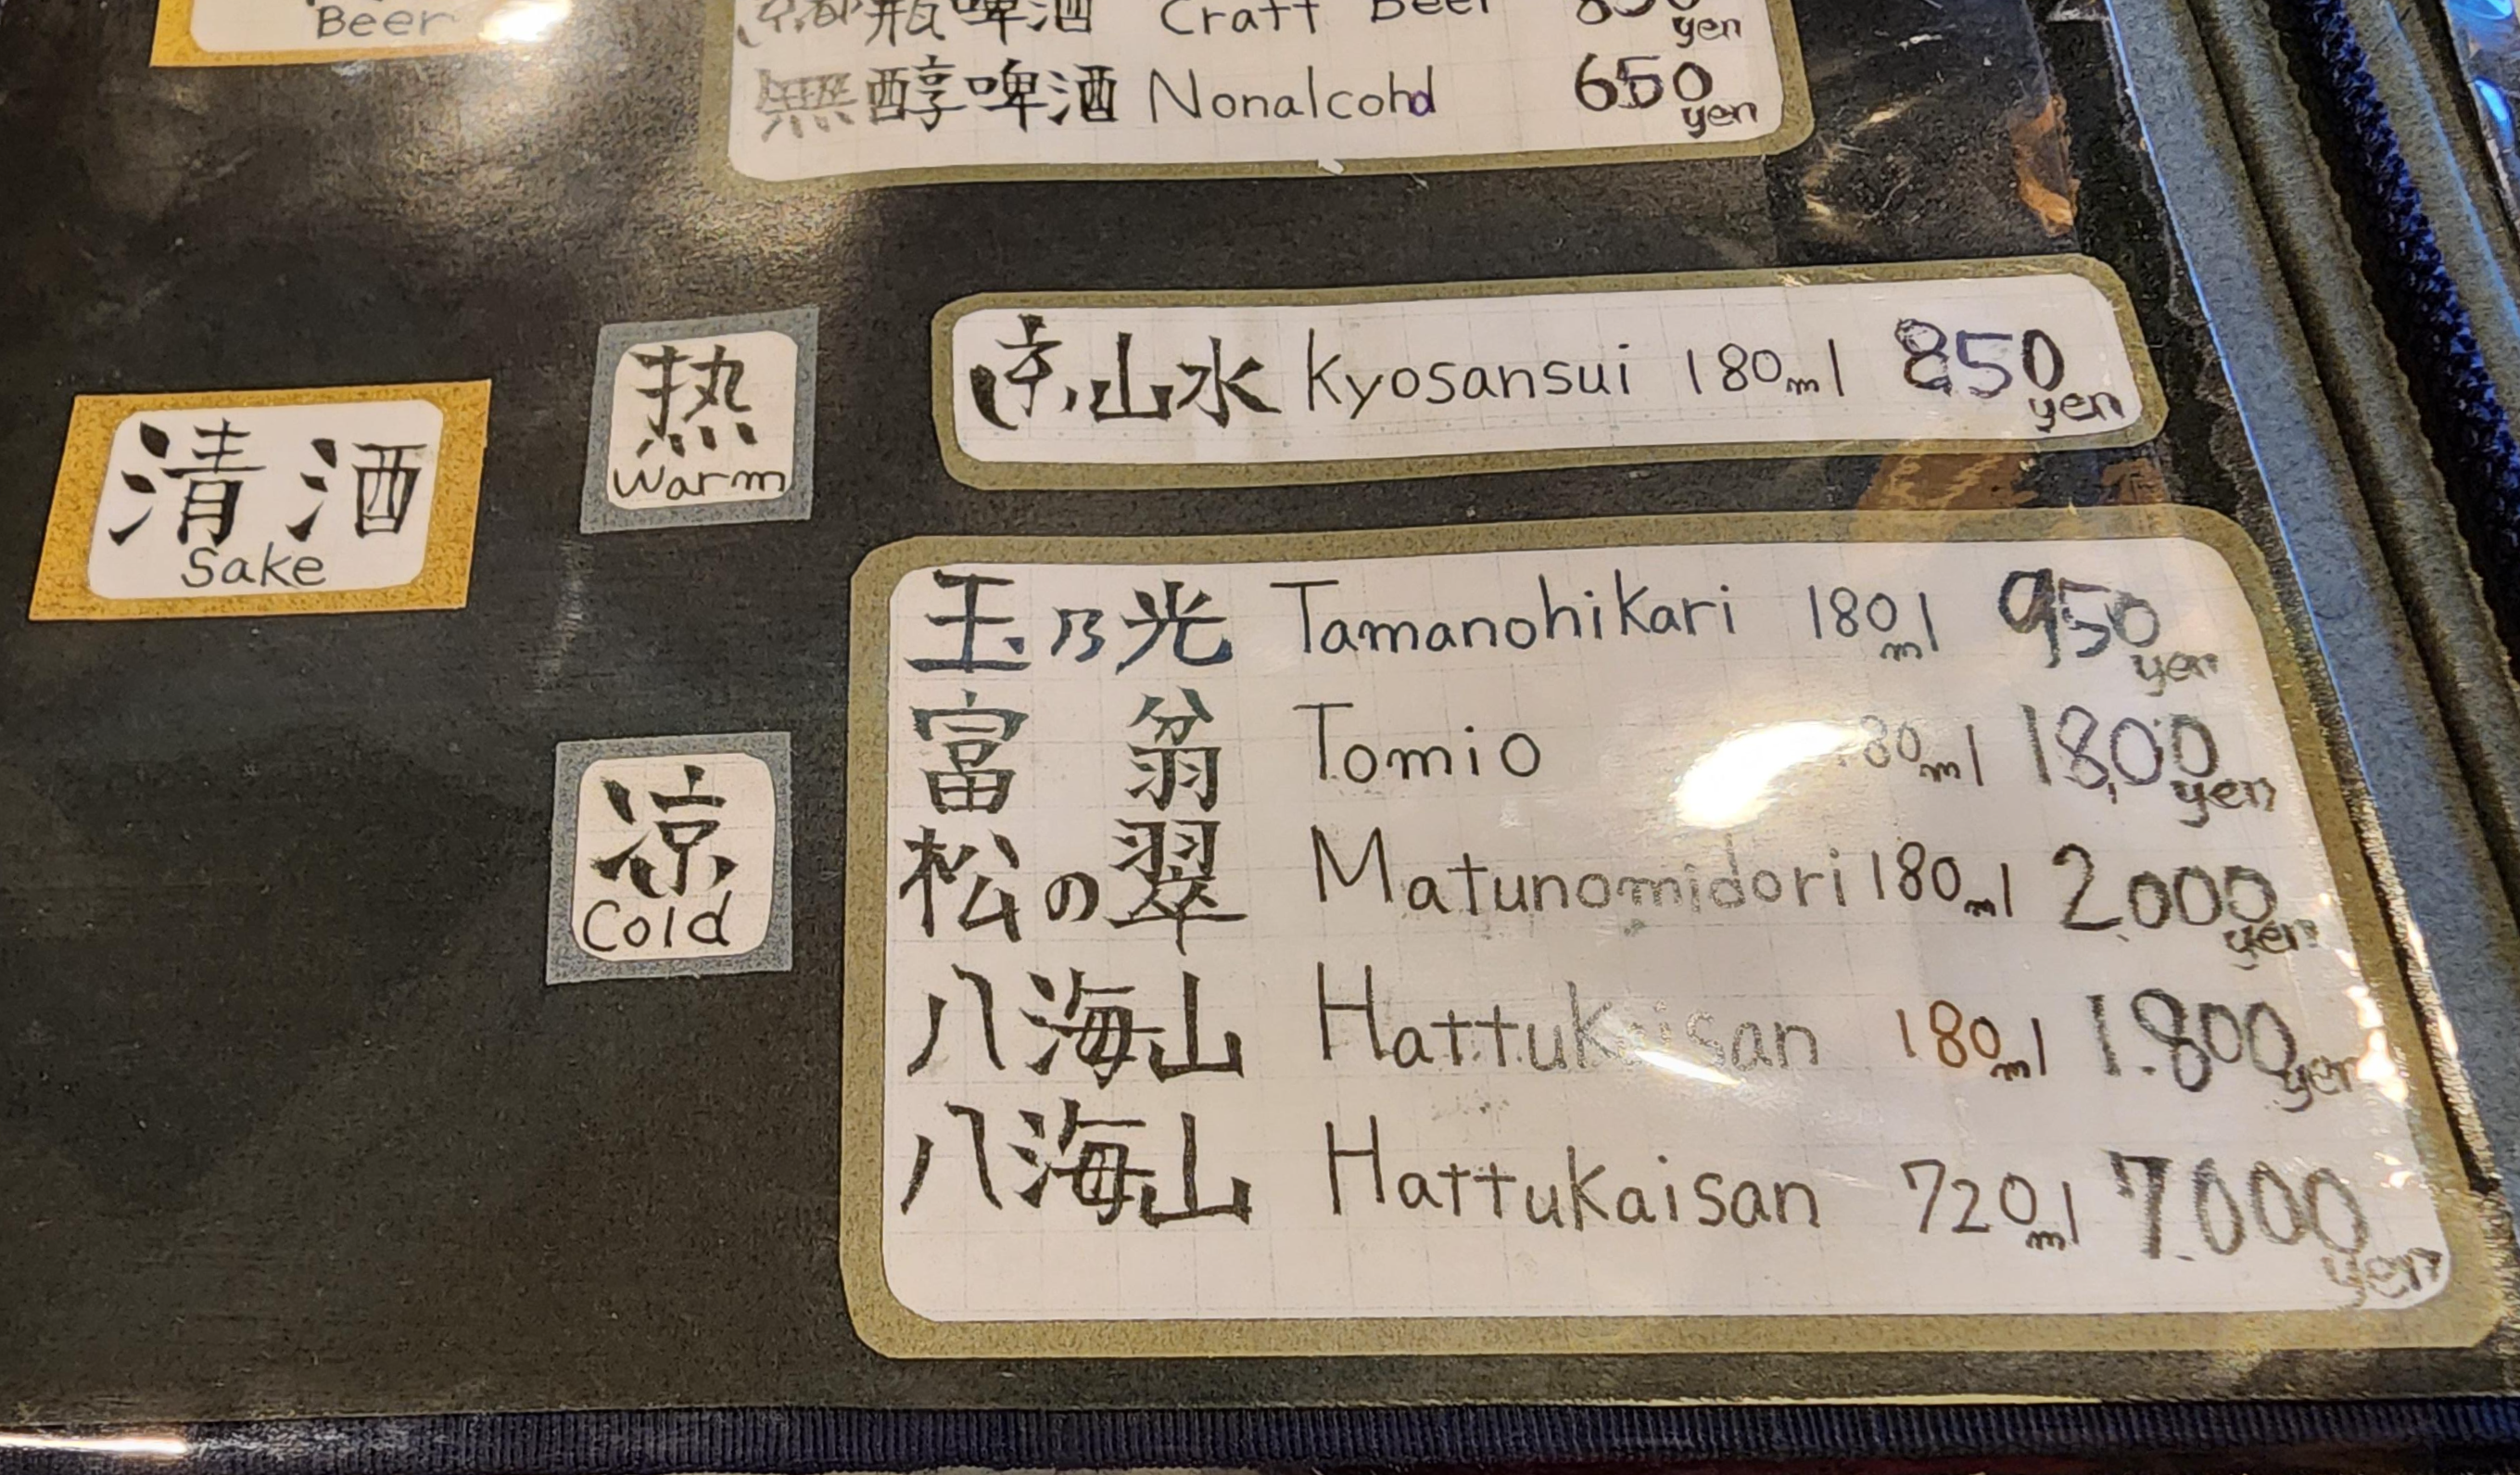 Beer
京都瓶啤酒 Craft Beer 850yen
無醇啤酒 Nonalcohol 650yen
清酒
Sake
热
Warm
京山水 Kyosansui 180ml 850yen
凉
Cold
玉乃光 Tamanohikari 180ml 950yen
富翁 Tomio 180ml 1,800yen
松の翠 Matunomidori 180ml 2.000yen
八海山 Hattukaisan 180ml 1.800yen
八海山 Hattukaisan 720ml 7.000yen